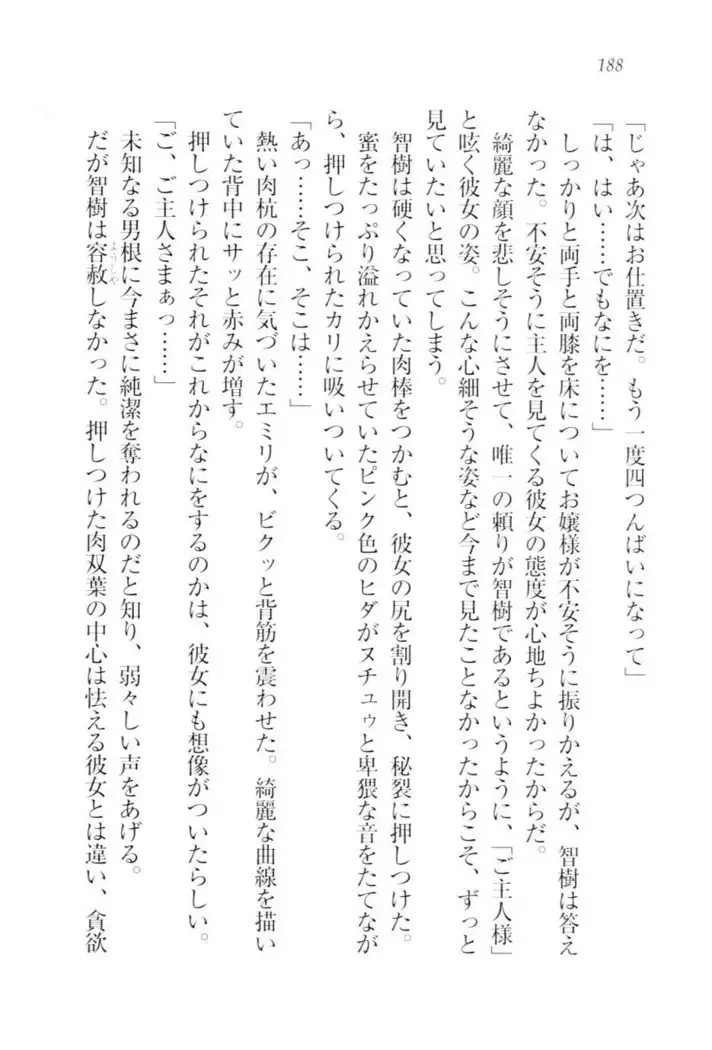 188
「じゃあ次はお仕置きだ。もう一度四つんばいになって」
「は、はい……でもなにを……」
しっかりと両手と両膝を床についてお嬢様が不安そうに振りかえるが、智樹は答え
なかった。不安そうに主人を見てくる彼女の態度が心地ちよかったからだ。
綺麗な顔を悲しそうにさせて、唯一の頼りが智樹であるというように、「ご主人様」
と呟く彼女の姿。こんな心細そうな姿など今まで見たことなかったからこそ、ずっと
見ていたいと思ってしまう。
智樹は硬くなっていた肉棒をつかむと、彼女の尻を割り開き、秘裂に押しつけた。
蜜をたっぷり溢れかえらせていたピンク色のヒダがヌチュゥと卑猥な音をたてなが
ら、押しつけられたカリに吸いついてくる。
「あっ……そこ、そこは……」
熱い肉杭の存在に気づいたエミリが、ビクッと背筋を震わせた。綺麗な曲線を描い
ていた背中にサッと赤みが増す。
押しつけられたそれがこれからなにをするのかは、彼女にも想像がついたらしい。
「ご、ご主人さまぁっ……」
未知なる男根に今まさに純潔を奪われるのだと知り、弱々しい声をあげる。
だが智樹は容赦しなかった。押しつけた肉双葉の中心は怯える彼女とは違い、貪欲
ようしや